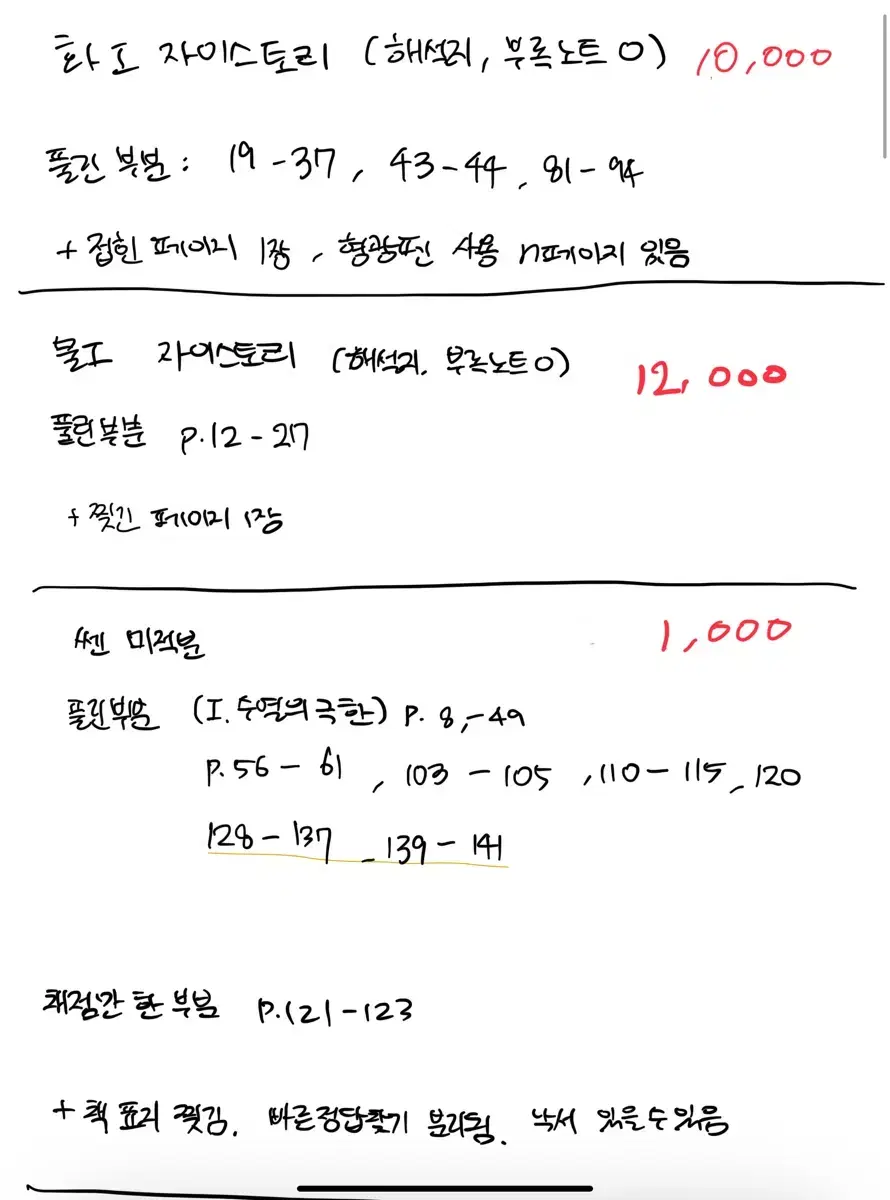 화I 자이스토리 (해설지, 부록노트 O) 10,000
풀린 부분 : 19 - 37, 43 - 44, 81 - 94
+ 접힌 페이지 1장, 형광펜 사용 n페이지 있음
물I 자이스토리 (해설지, 부록노트 O) 12,000
풀린부분 p.12 - 27
+ 찢긴 페이지 1장
쎈 미적분 1,000
풀린부분 (I. 수열의 극한) p. 8,-49
p.56 - 61, 103 - 105, 110 - 115, 120
128 - 137, 139 - 141
채점만 한 부분 p.121-123
+ 책 표지 찢김. 빠른정답찾기 분리됨. 낙서 있을수있음